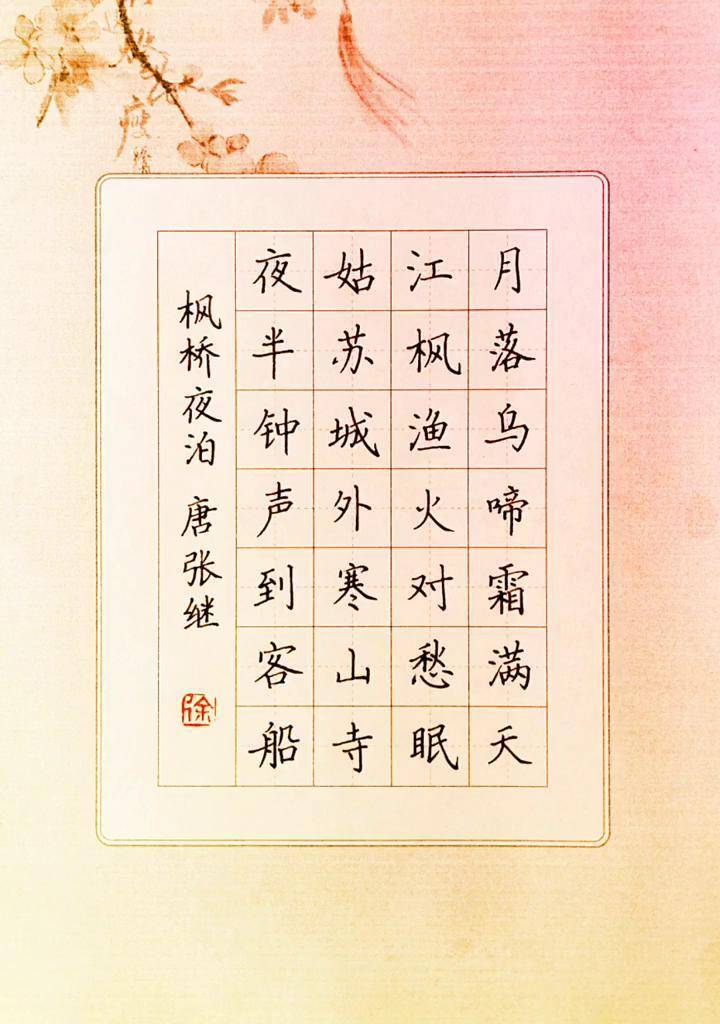 月落乌啼霜满天
江枫渔火对愁眠
姑苏城外寒山寺
夜半钟声到客船
枫桥夜泊 唐张继
徐
瘦